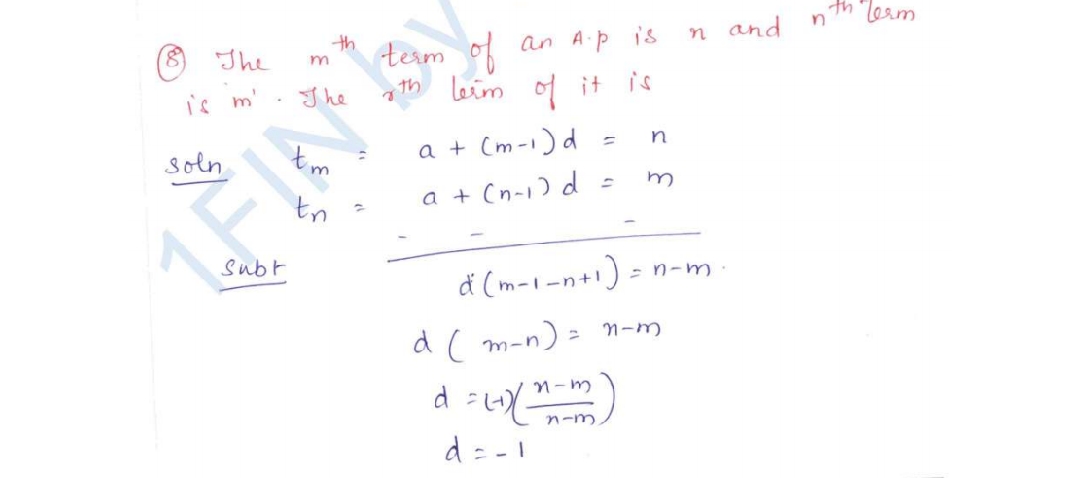 ⑧ The mᵗʰ term of an A.P is n and nᵗʰ term
is 'm'. The rᵗʰ term of it is
soln tₘ = a + (m-1)d = n
tₙ = a + (n-1)d = m
- - -
Subt d(m-1-n+1) = n-m.
d(m-n) = n-m
d = (-1)(n-m/n-m)
d = -1
1FIN by